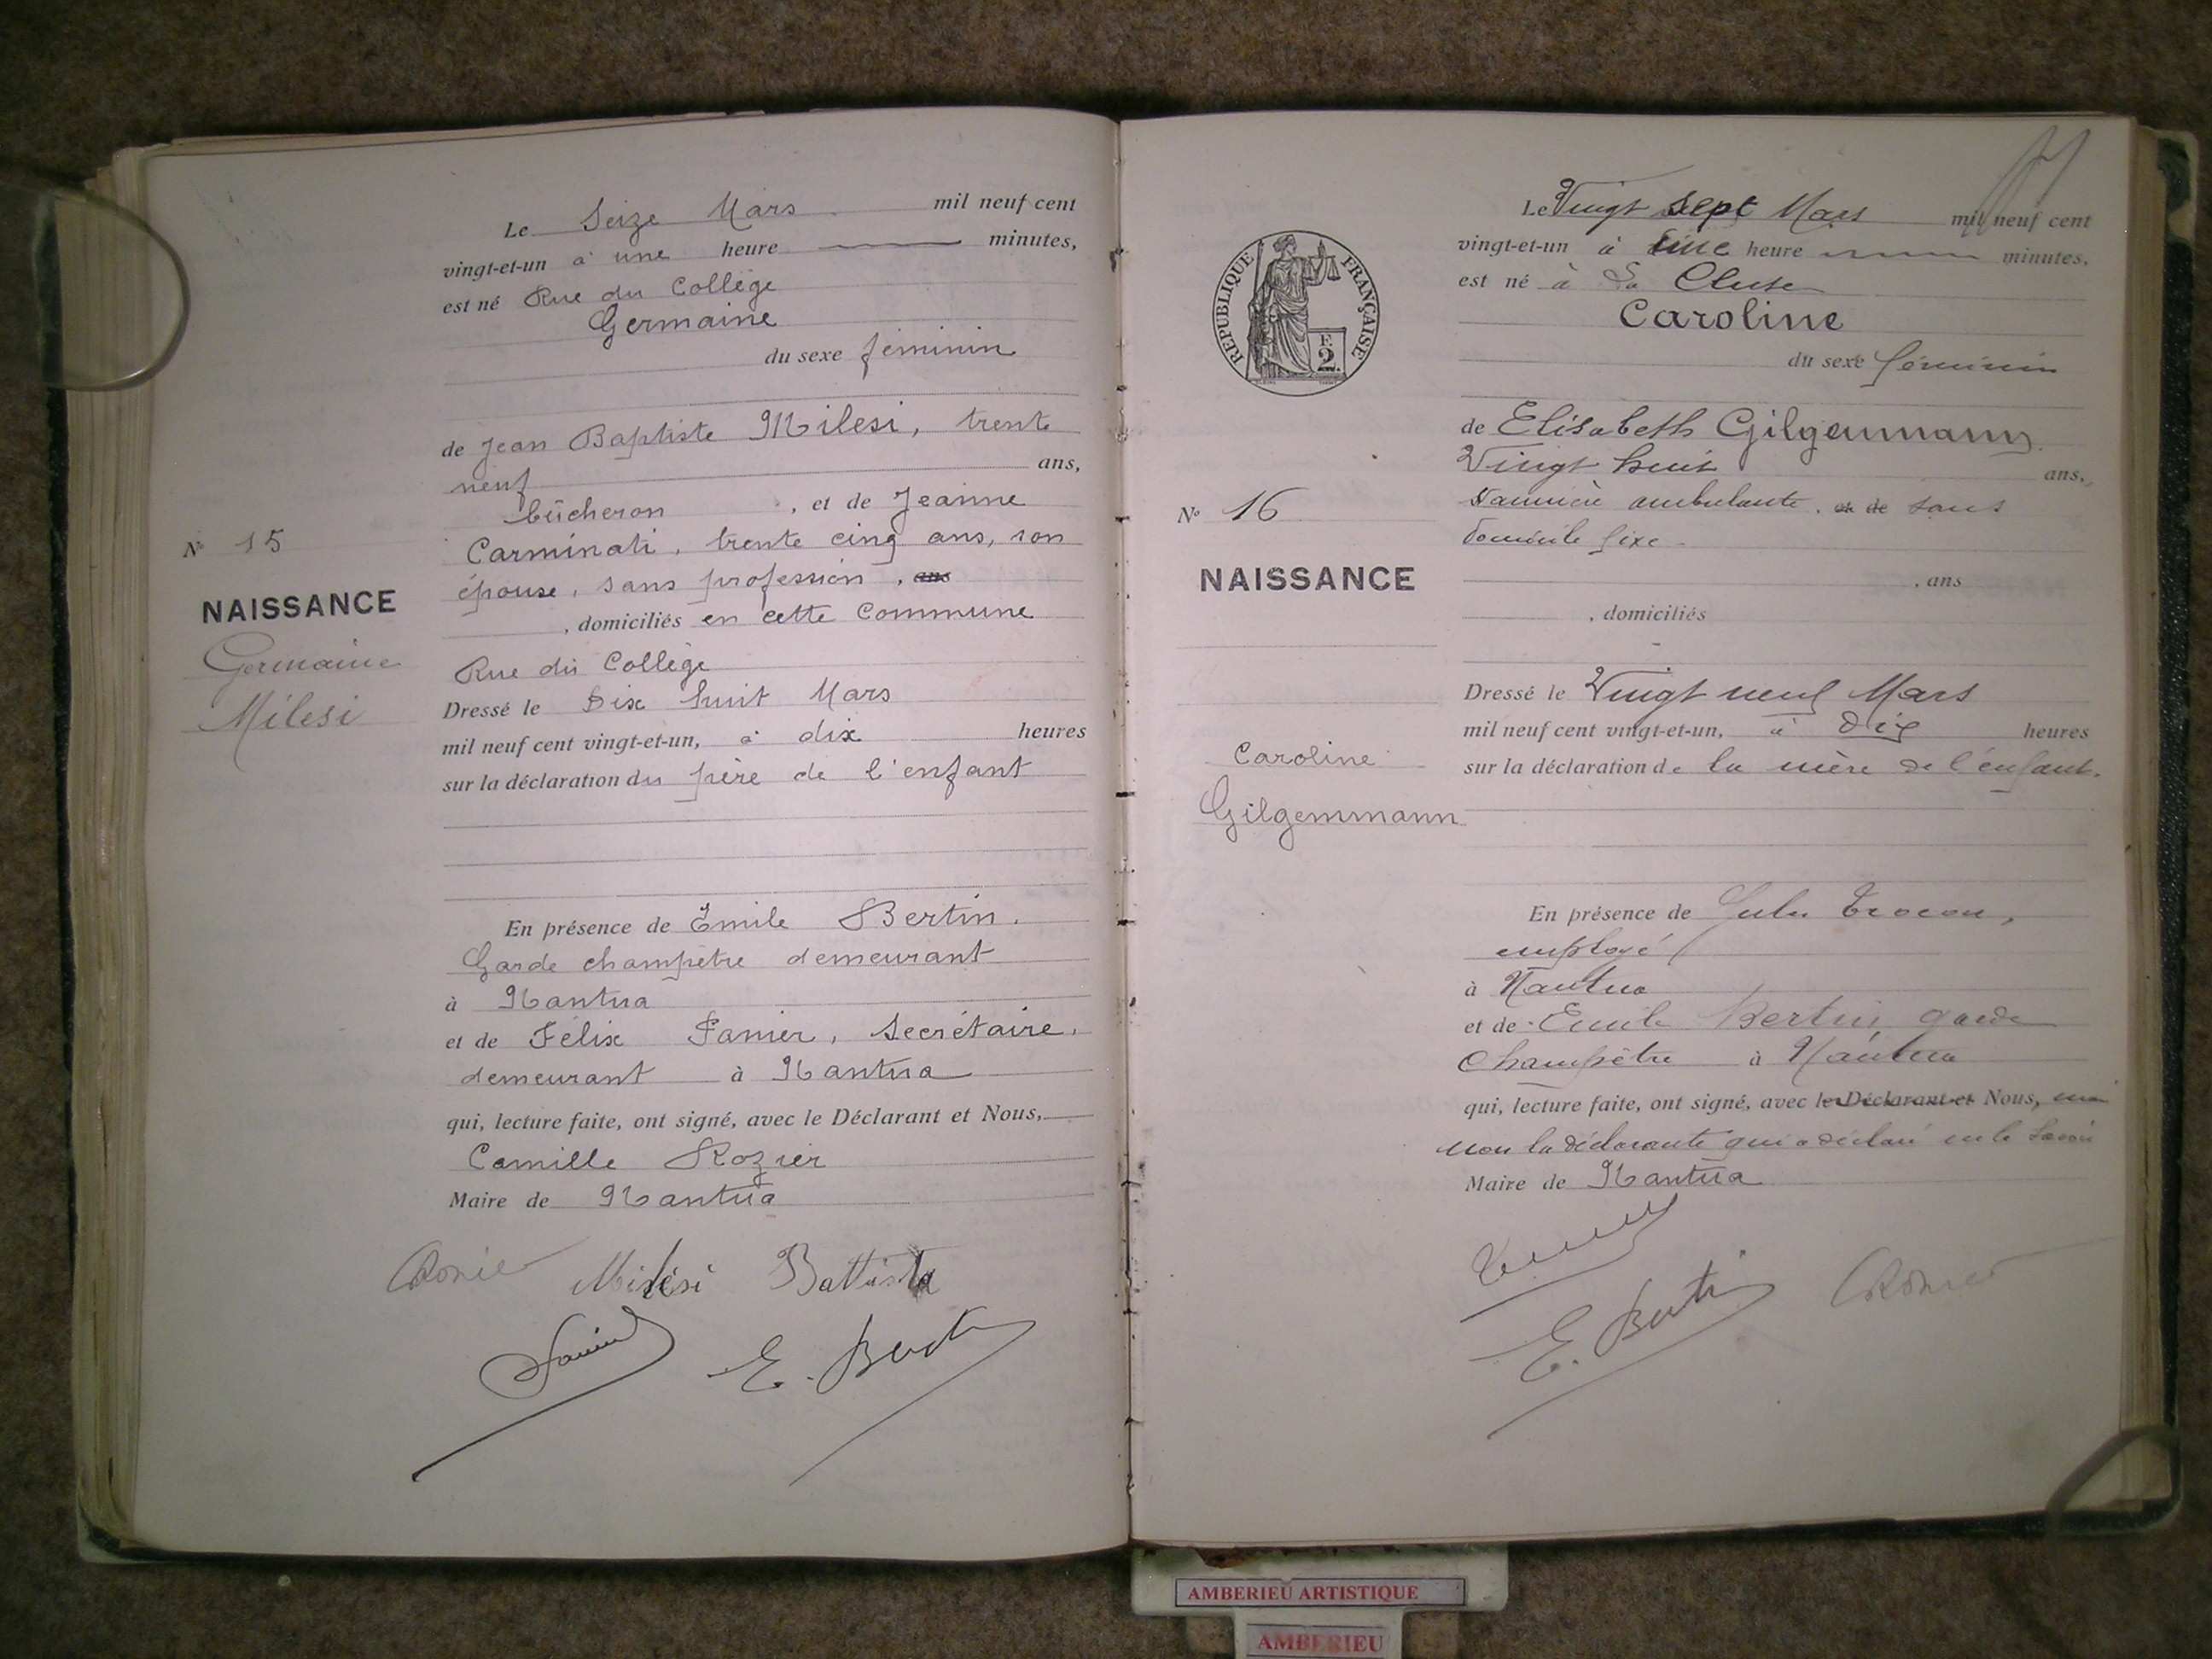 Le Seize Mars mil neuf cent
vingt-et-un à une heure minutes,
est né Rue du Collège
Germaine
du sexe féminin
de Jean Baptiste Milesi, trente
neuf ans,
bûcheron, et de Jeanne
Carminati, trente cinq ans, son
épouse, sans profession, ans
, domiciliés en cette Commune
Rue du Collège
Dressé le Dix huit Mars
mil neuf cent vingt-et-un, à dix heures
sur la déclaration du père de l'enfant
En présence de Emile Bertin.
Garde champêtre demeurant
à Nantua
et de Félix Panier, Secrétaire,
demeurant à Nantua
qui, lecture faite, ont signé, avec le Déclarant et Nous,
Camille Rozier
Maire de Nantua
Milési Battista
E. Bertin
N° 15
NAISSANCE
Germaine
Milesi
Le Vingt sept Mars mil neuf cent
vingt-et-un à une heure minutes,
est né à La Cluse
Caroline
du sexe féminin
de Elisabeth Gilgenmann
Vingt huit ans,
Vannière ambulante, et de sans
domicile fixe
, ans
, domiciliés
Dressé le Vingt neuf Mars
mil neuf cent vingt-et-un, à Dix heures
sur la déclaration de la mère de l'enfant.
En présence de
employé
à Nantua
et de Emile Bertin garde
Champêtre à Nantua
qui, lecture faite, ont signé, avec le Déclarant et Nous,
non la déclarante qui a déclaré ne le savoir
Maire de Nantua
E. Bertin
REPUBLIQUE FRANÇAISE
N° 16
NAISSANCE
Caroline
Gilgemmann
AMBERIEU ARTISTIQUE
AMBERIEU